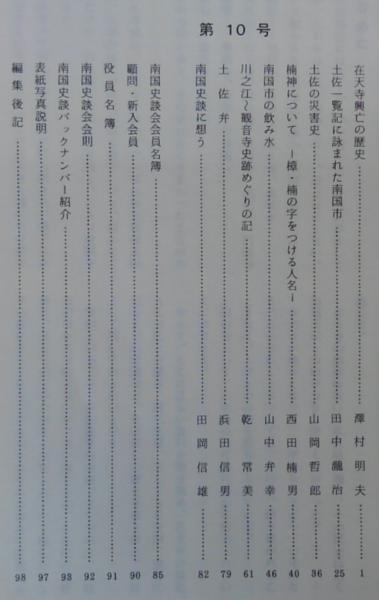 第 10 号
在天寺興亡の歴史 澤村明夫 1
土佐一覧記に詠まれた南国市 田中瀧治 25
土佐の災害史 山岡哲郎 36
楠神について ー樟・楠の字をつける人名ー 西田楠男 40
南国市の飲み水 山中弁幸 46
川之江〜観音寺史跡めぐりの記 乾常美 61
土佐弁 浜田信男 79
南国史談に想う 田岡信雄 82
南国史談会会員名簿 85
顧問・新入会員 90
役員名簿 91
南国史談会会則 92
南国史談バックナンバー紹介 93
表紙写真説明 97
編集後記 98